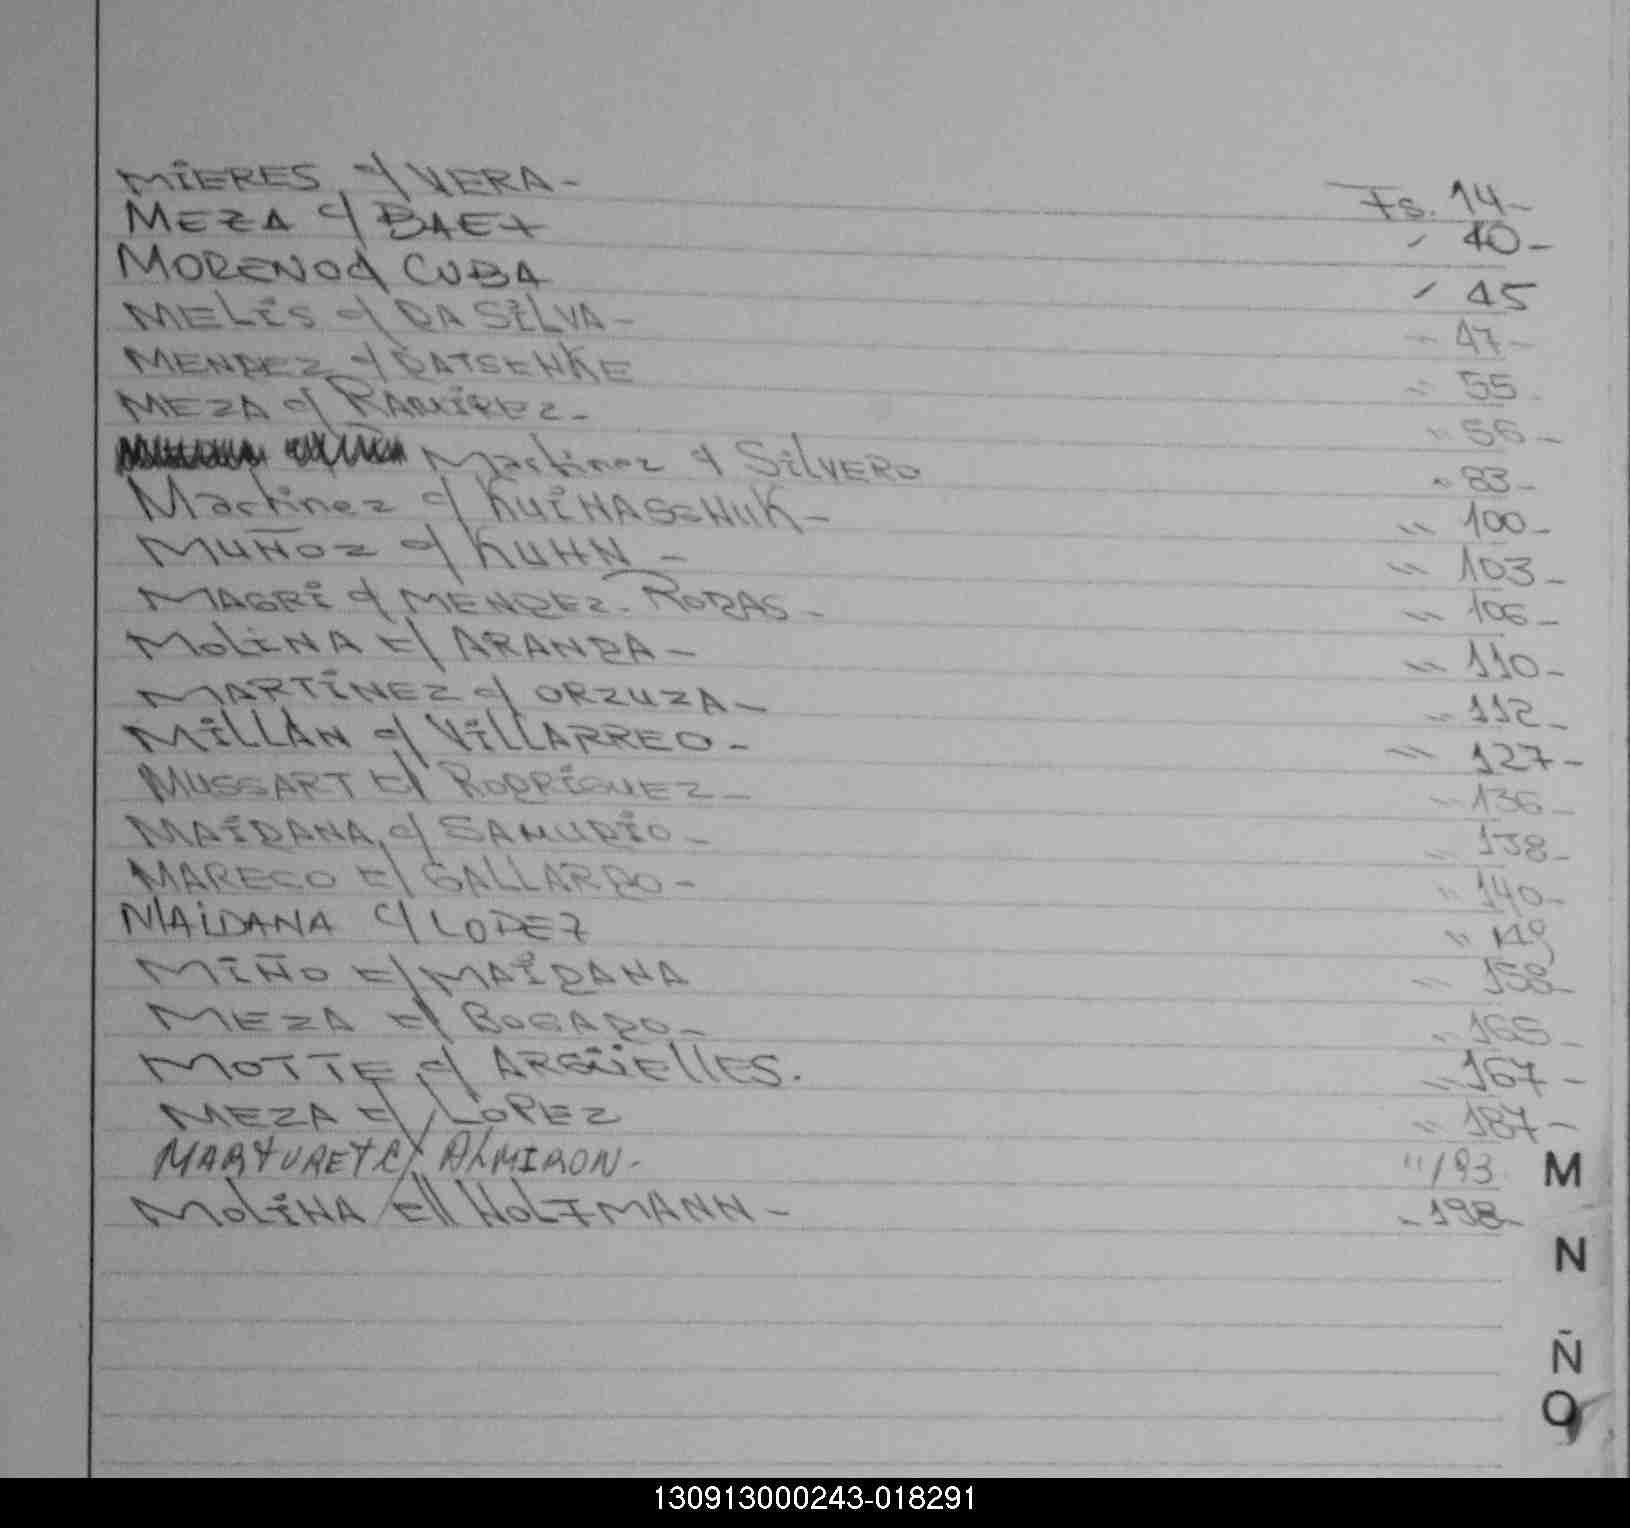 MIERES c/ VERA - Fs. 14 -
MEZA c/ BAEZ " 40 -
MORENO c/ CUBA " 45
MELIS c/ DA SILVA - " 47 -
MENDEZ c/ " 55
MEZA c/ RAMÍREZ - " 56 -
Martinez c/ SILVERO " 83 -
Martinez c/ - " 100 -
MUÑOZ c/ KUHN - " 103 -
MAGRI c/ MENDEZ - RODAS - " 106 -
MOLINA c/ ARANDA - " 110 -
MARTÍNEZ c/ ORZUZA - " 112 -
MILLÁN c/ VILLARREO - " 127 -
MUSSART c/ RODRÍGUEZ - " 136 -
MAIDANA c/ SAMUDIO - " 138 -
MARECO c/ GALLARDO - " 140 -
MAIDANA C/ LOPEZ "
MIÑO c/ MAIDANA " 158 -
MEZA c/ BOGADO - " 165 -
MOTTE c/ ARGÜELLES. " 167 -
MEZA c/ LOPEZ " 187 -
MARTURET C/ ALMIRON - " 193
MOLINA c/ HOLZMANN - " 198 -
M
N
Ñ
O
130913000243-018291